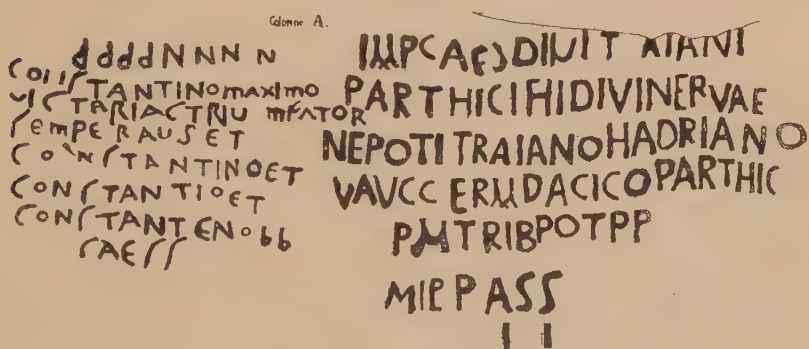 Colonne A.
ddddNNNN
CONSTANTINOmaximo
VICTARIACTRIUmFATOR
SEMPERAUSET
CONSTANTINOET
CONSTANTIOET
CONSTANTENobb
CAESS
IMPCAESDIUIT XIANI
PARTHICIFIHDIVINERVAE
NEPOTITRAIANOHADRIANO
VAVCC ERMDACICOPARTHIC
PMTRIBPOTPP
MIPPASS
II